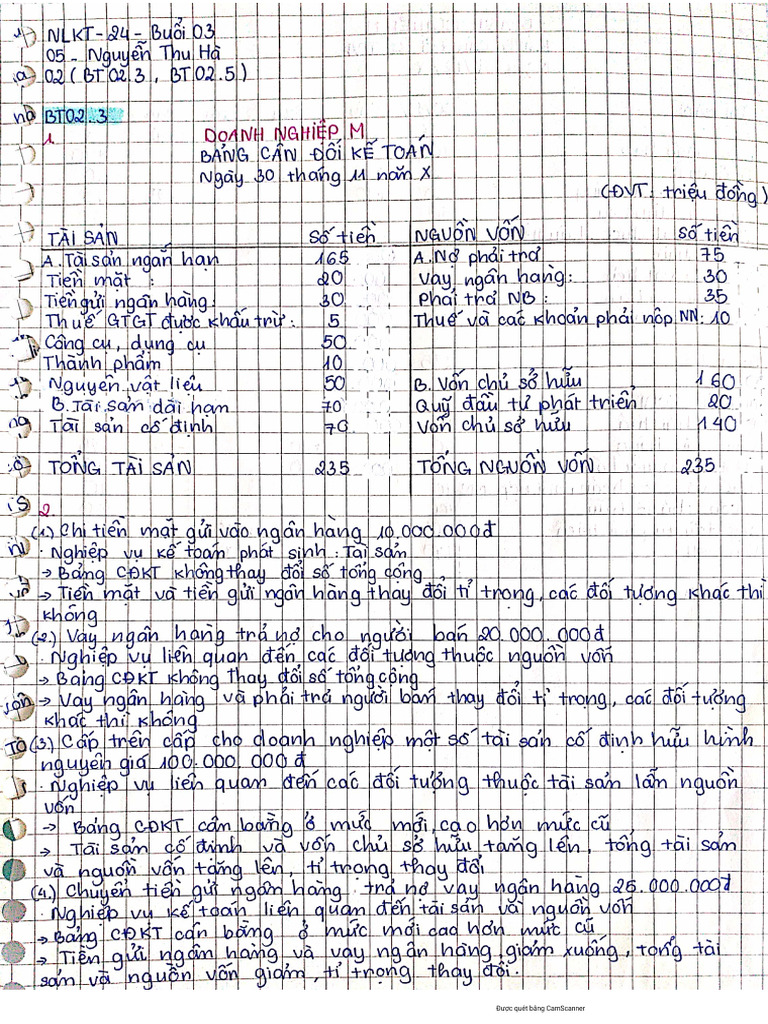 NLKT-24-Buổi 03
05 - Nguyễn Thu Hà
02 (BT02.3, BT02.5)
BT02.3
1.
DOANH NGHIỆP M
BẢNG CÂN ĐỐI KẾ TOÁN
Ngày 30 tháng 11 năm X
(ĐVT: triệu đồng)
TÀI SẢN Số tiền NGUỒN VỐN Số tiền
A. Tài sản ngắn hạn 165 A. Nợ phải trả 75
Tiền mặt : 20 Vay ngân hàng: 30
Tiền gửi ngân hàng: 30 Phải trả NB : 35
Thuế GTGT được khấu trừ: 5 Thuế và các khoản phải nộp NN: 10
Công cụ, dụng cụ 50
Thành phẩm 10
Nguyên vật liệu 50 B. Vốn chủ sở hữu 160
B. Tài sản dài hạn 70 Quỹ đầu tư phát triển 20
Tài sản cố định 70 Vốn chủ sở hữu 140
TỔNG TÀI SẢN 235 TỔNG NGUỒN VỐN 235
2.
(1) Chi tiền mặt gửi vào ngân hàng 10.000.000đ
· Nghiệp vụ kế toán phát sinh: Tài sản
→ Bảng CĐKT không thay đổi số tổng cộng
→ Tiền mặt và tiền gửi ngân hàng thay đổi tỉ trọng, các đối tượng khác thì
không
(2.) Vay ngân hàng trả nợ cho người bán 20.000.000đ
· Nghiệp vụ liên quan đến các đối tượng thuộc nguồn vốn
→ Bảng CĐKT không thay đổi số tổng cộng
→ Vay ngân hàng và phải trả người bán thay đổi tỉ trọng, các đối tượng
khác thì không
(3.) Cấp trên cấp cho doanh nghiệp một số tài sản cố định hữu hình
nguyên giá 100.000.000đ
· Nghiệp vụ liên quan đến các đối tượng thuộc tài sản lẫn nguồn
vốn
→ Bảng CĐKT cân bằng ở mức mới, cao hơn mức cũ
→ Tài sản cố định và vốn chủ sở hữu tăng lên, tổng tài sản
và nguồn vốn tăng lên, tỉ trọng thay đổi
(4.) Chuyển tiền gửi ngân hàng trả nợ vay ngân hàng 25.000.000đ
· Nghiệp vụ kế toán liên quan đến tài sản và nguồn vốn
→ Bảng CĐKT cân bằng ở mức mới cao hơn mức cũ
→ Tiền gửi ngân hàng và vay ngân hàng giảm xuống, tổng tài
sản và nguồn vốn giảm, tỉ trọng thay đổi.
Được quét bằng CamScanner